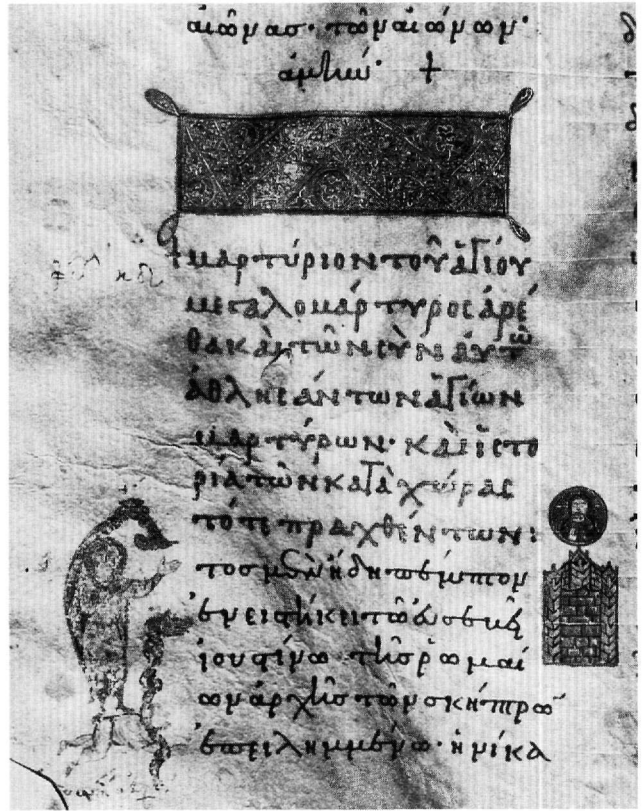 αἰῶνασ· τῶν αἰώνων·
ἀμήν· +
+ μαρτύριον τοῦ ἁγίου
μεγαλομάρτυρος ἀρέ
θα κὰι τῶν σὺν ἀυτῶ
ἀθλησάντων ἁγίων
μαρτύρων· κὰι ἱστο
ρία τῶν κατὰ χώρας
τότε πραχθέντων:
τοσ μὲν ἤδη πέμπτον
ἐνειστήκει τῶ εὐσεβεῖ
ἰουστίνω τῆσ ῥωμαί
ων ἀρχῆσ τῶν σκήπρω
ἐπειλημμένω· ἡνίκα